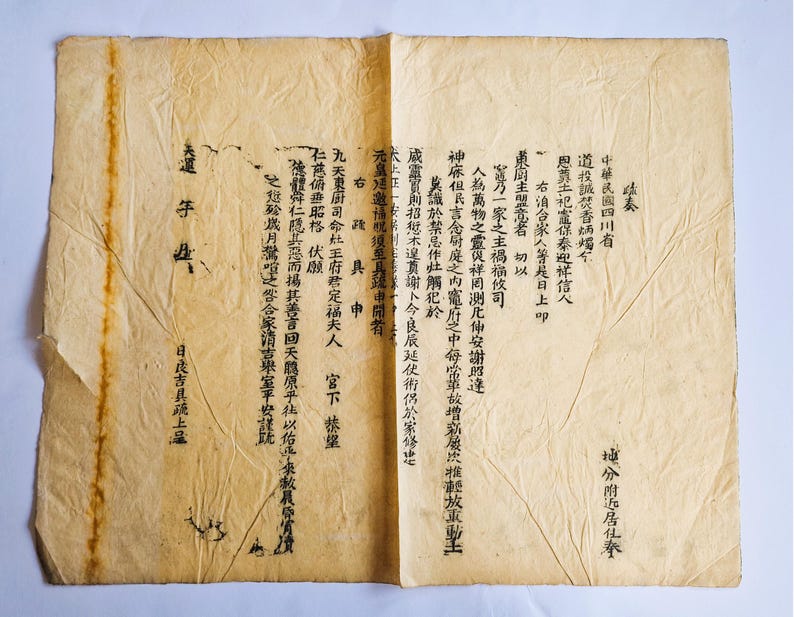 疏奏
中華民國四川省 地分附近居住奏
道投誠焚香炳燭今
恩奠土祀竈保泰迎祥信人
右洎合家人等是日上叩
東厨主盟意者 切以
竈乃一家之主禍福攸司
人為萬物之靈災祥罔測凡伸安謝昭達
神庥但民言念厨庭之内竈府之中每常革故增新屢次推輕放重動土
莫識於禁忌作灶觸犯於
威靈實則招愆未遑奠謝卜今良辰延使術侶於家修建
元皇延邀福貺須至具疏申聞者
右 疏 具 申
九天東厨司命灶王府君定福夫人 宮下 恭望
仁慈俯垂昭格 伏願
德體舜仁隱其惡而揚其善言回天聽原乎往以佑乎來赦晨昏
之愆殄歲月驚喧之咎合家清吉舉室平安謹疏
天運 年 月 日良吉具疏上呈